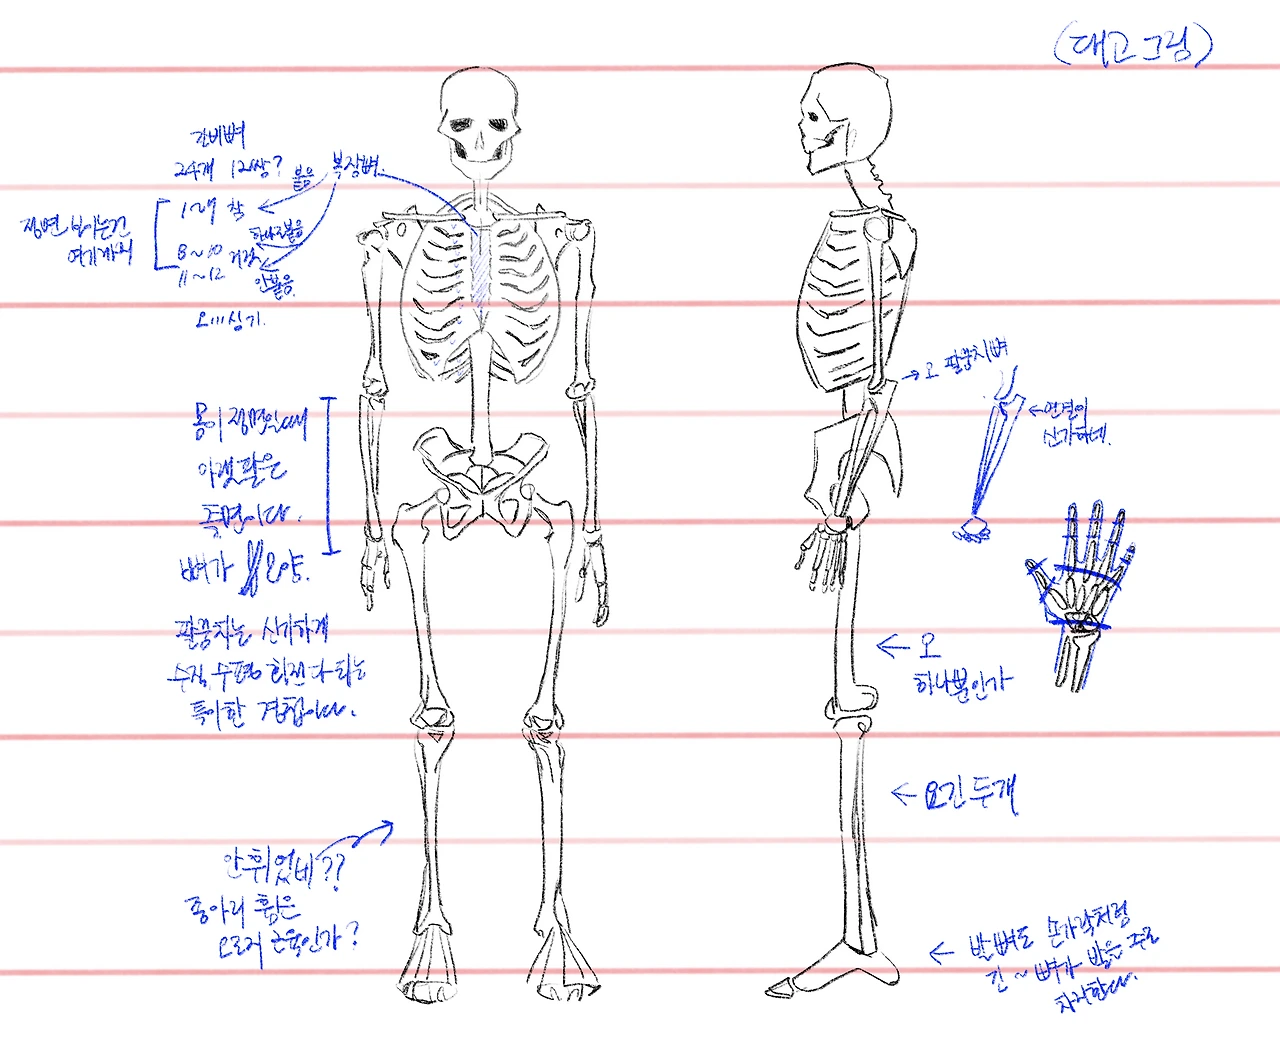 (대고 그림)
갈비뼈
24개 12쌍?
붙음
복장뼈.
1~7 착
정면 보이는건
여기까지
하나로붙음
8~10
11~12
안붙음.
오 신기.
→ 오 팔꿈치뼈
← 연결이
신기하네.
몸이 정면일때
아랫팔은
측면이다.
뼈가 모양.
팔꿈치는 신기하게
수직 수평 회전 다 되는
특이한 관절이다.
← 오
하나뿐인가
← 요긴 두개
안휘었네??
종아리 휨은
오로지 근육인가?
← 발뼈도 손가락처럼
긴~뼈가 발을 주로
차지한다.